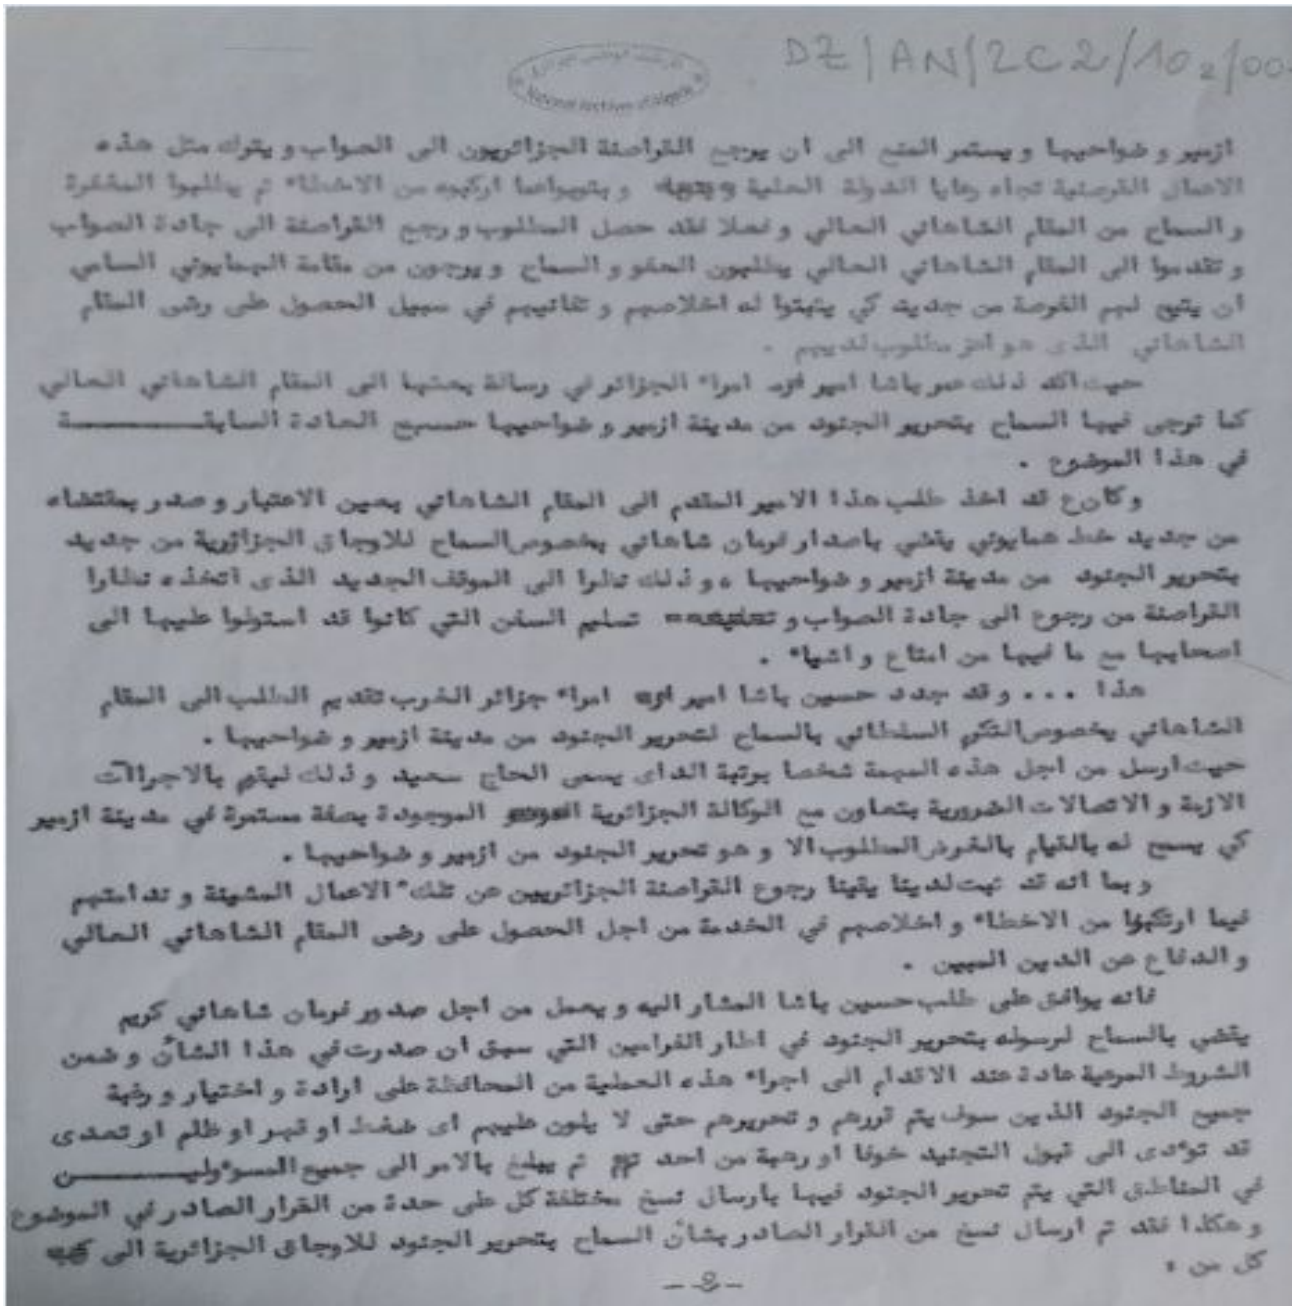 DZ/AN/2C2/10₂/00
National Archives of Algeria
ازمير و ضواحيها و يستمر المنع الى ان يرجع القراصنة الجزائريون الى الصواب و يترك مثل هذه
الاعمال القرصنية تجاه رعايا الدولة العلية و ارتكبوه من الاخطاء ثم يطلبوا المغفرة
و السماح من المقام الشاهاني الحالي و فعلا فقد حصل المطلوب و رجع القراصنة الى جادة الصواب
و تقدموا الى المقام الشاهاني الحالي يطلبون العفو و السماح و يرجون من مقامة الهمايوني السامي
ان يتيح لهم الفرصة من جديد كي يثبتوا له اخلاصهم و تفانيهم في سبيل الحصول على رضى المقام
الشاهاني الذى هو اعز مطلوب لديهم .
حيث اكد ذلك عمر باشا امير امراء الجزائر في رسالة بعثها الى المقام الشاهاني الحالي
كما ترجى فيها السماح بتحرير الجنود من مدينة ازمير و ضواحيها حسبح العادة السابقـــــة
في هذا الموضوع .
و كان قد اخذ طلب هذا الامير المقدم الى المقام الشاهاني بعين الاعتبار و صدر بمقتضاه
من جديد خط همايوني يقضي باصدار فرمان شاهاني بخصوص السماح للاوجاق الجزائرية من جديد
بتحرير الجنود من مدينة ازمير و ضواحيها ، و ذلك نظرا الى الموقف الجديد الذى اتخذه نظارا
القراصنة من رجوع الى جادة الصواب و تسليم السفن التي كانوا قد استولوا عليها الى
اصحابها مع ما فيها من امتاع و اشياء .
هذا ... و قد جدد حسين باشا امير امراء جزائر الغرب تقديم الطلب الى المقام
الشاهاني بخصوص التكرم السلطاني بالسماح لتحرير الجنود من مدينة ازمير و ضواحيها .
حيث ارسل من اجل هذه المهمة شخصا برتبة الداى يسمى الحاج سعيد و ذلك ليقوم بالاجراآت
الازمة و الاتصالات الضرورية بتعاون مع الوكالة الجزائرية الموجودة بصفة مستمرة في مدينة ازمير
كي يسمح له بالقيام بالغرض المطلوب الا و هو تحرير الجنود من ازمير و ضواحيها .
و بما انه قد ثبت لدينا يقينا رجوع القراصنة الجزائريين عن تلك الاعمال المشينة و ندامتهم
فيما ارتكبوا من الاخطاء و اخلاصهم في الخدمة من اجل الحصول على رضى المقام الشاهاني الحالي
و الدفاع عن الدين المبين .
فانه يوافق على طلب حسين باشا المشار اليه و يعمل من اجل صدور فرمان شاهاني كريم
يقضي بالسماح لرسوله بتحرير الجنود في اطار الفرامين التي سبق ان صدرت في هذا الشأن و ضمن
الشروط المرعية عادة عند الاقدام الى اجراء هذه العملية من المحافظة على ارادة و اختيار و رغبة
جميع الجنود الذين سوف يتم تررهم و تحريرهم حتى لا يلون عليهم اى ضغط او قهر او ظلم او تعدى
قد تؤدى الى قبول التجنيد خوفا او رهبة من احد ثم يبلغ بالامر الى جميع المسؤوليـــــن
في المناطق التي يتم تحرير الجنود فيها بارسال نسخ مختلفة كل على حدة من القرار الصادر في الموضوع
و هكذا فقد تم ارسال نسخ من القرار الصادر بشأن السماح بتحرير الجنود للاوجاق الجزائرية الى
كل من :
-8-